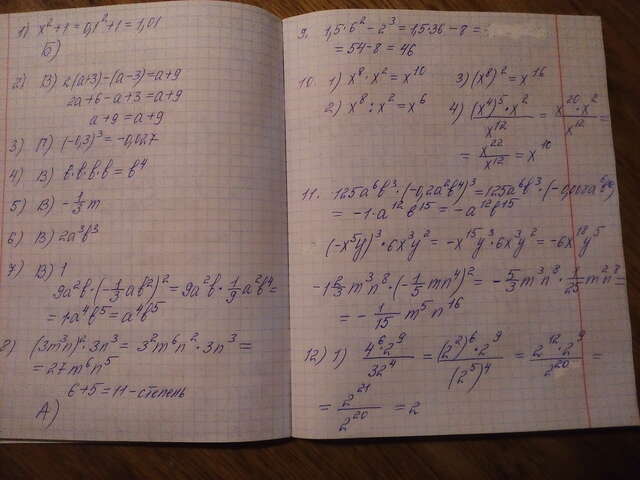 1) x²+1=0,1²+1=1,01
Б)
2) В) 2(a+3)-(a-3)=a+9
2a+6-a+3=a+9
a+9=a+9
3) П) (-0,3)³=-0,027
4) В) b·b·b·b=b⁴
5) В) -1/3 m
6) В) 2a³b³
7) В) 1
9a²b·(-1/3 ab²)²=9a²b·1/9 a²b⁴=
=1·a⁴b⁵=a⁴b⁵
8) (3m³n)²·3n³=3²m⁶n²·3n³=
=27m⁶n⁵
6+5=11-степень
А)
9. 1,5·6²-2³=1,5·36-8=
=54-8=46
10. 1) x⁸·x²=x¹⁰ 3) (x⁸)²=x¹⁶
2) x⁸:x²=x⁶ 4) (x⁴)⁵·x²/x¹²=x²⁰·x²/x¹²=
=x²²/x¹²=x¹⁰
11. 125a⁶b³·(-0,2a²b⁴)³=125a⁶b³·(-0,008a⁶
=-1·a¹²b¹⁵=-a¹²b¹⁵
(-x⁵y)³·6x³y²=-x¹⁵y³·6x³y²=-6x¹⁸y⁵
-1 2/3 m³n⁸·(-1/5 mn⁴)²=-5/3 m³n⁸·1/25 m²n⁸=
=-1/15 m⁵n¹⁶
12) 1) 4⁶·2⁹/32⁴=(2²)⁶·2⁹/(2⁵)⁴=2¹²·2⁹/2²⁰=
=2²¹/2²⁰=2